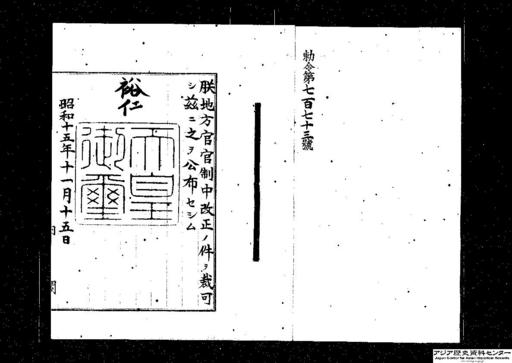 勅令第七百七十三號
朕地方官官制中改正ノ件ヲ裁可
シ茲ニ之ヲ公布セシム
裕仁
天皇
御璽
昭和十五年十一月十五日
内
閣
アジア歴史資料センター
Japan Center for Asian Historical Records